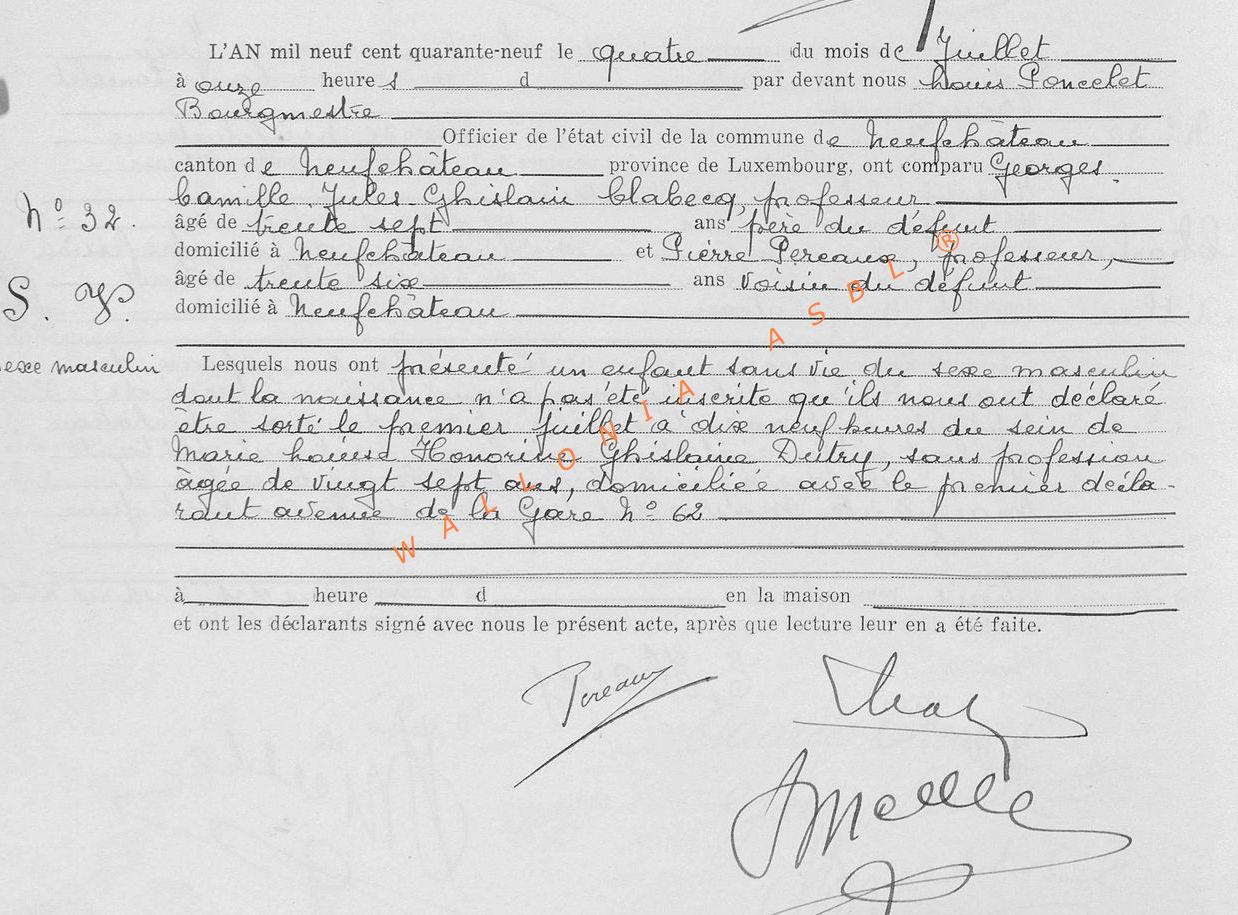 L'AN mil neuf cent quarante-neuf le quatre du mois de Juillet
à onze heures d par devant nous Louis Poncelet
Bourgmestre
Officier de l'état civil de la commune de Neufchâteau
canton de Neufchâteau province de Luxembourg, ont comparu Georges
Camille Jules Ghislain Clabecq, professeur
Nº 32.
âgé de trente sept ans père du défunt
domicilié à Neufchâteau et Pierre Pereaux, professeur,
âgé de trente six ans voisin du défunt
S. V.
domicilié à Neufchâteau
sexe masculin
Lesquels nous ont présenté un enfant sans vie du sexe masculin
dont la naissance n'a pas été inscrite qu'ils nous ont déclaré
être sorti le premier juillet à dix neuf heures du sein de
Marie Louise Honorine Ghislaine Dutry, sans profession
âgée de vingt sept ans, domiciliée avec le premier décla-
rant avenue de la Gare Nº 62
WALLONIA ASBL ®
à heure d en la maison
et ont les déclarants signé avec nous le présent acte, après que lecture leur en a été faite.
Pereaux